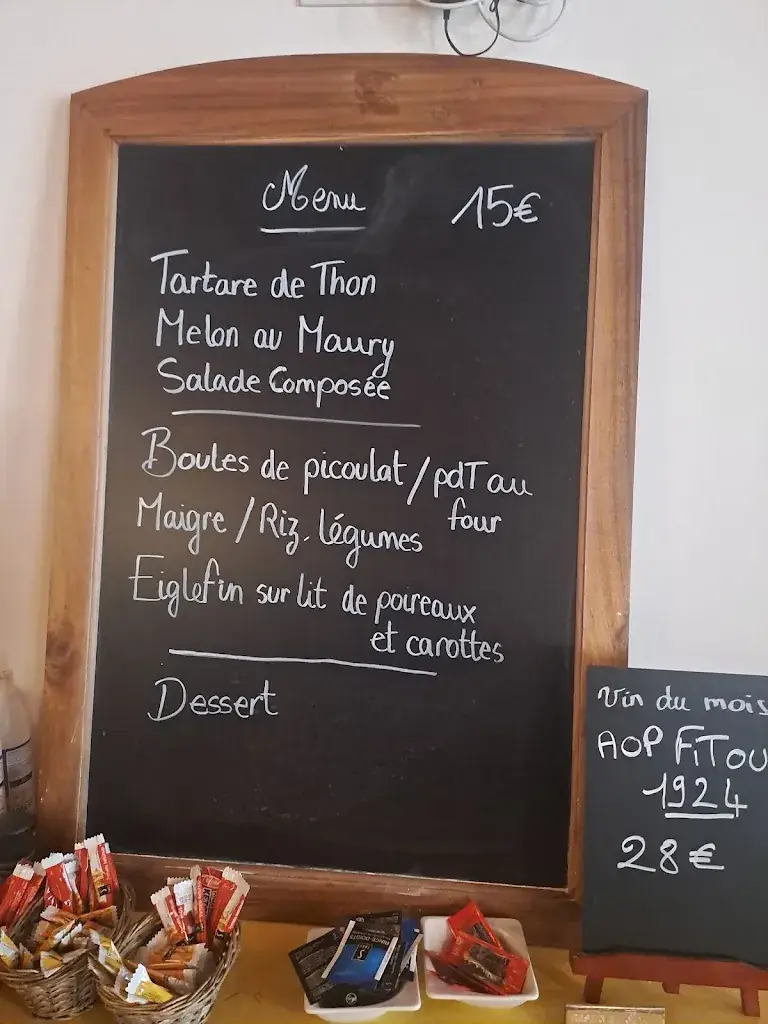 Menu 15€
Tartare de Thon
Melon au Maury
Salade Composée
Boules de picoulat / pdT au
four
Maigre / Riz, légumes
Eiglefin sur lit de poireaux
et carottes
Dessert
Vin du mois
AOP FiTou
1924
28€
RINCE-DOIGTS